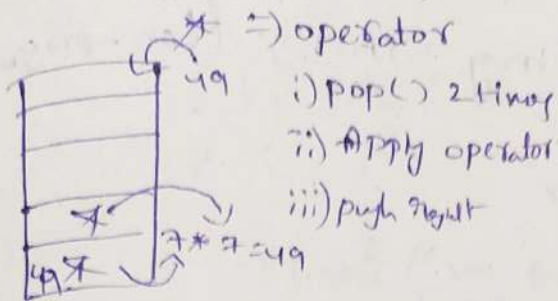 * => operator
49
i) pop() 2 times
ii) Apply operator
iii) push result
7
7 * 7 = 49
49 7